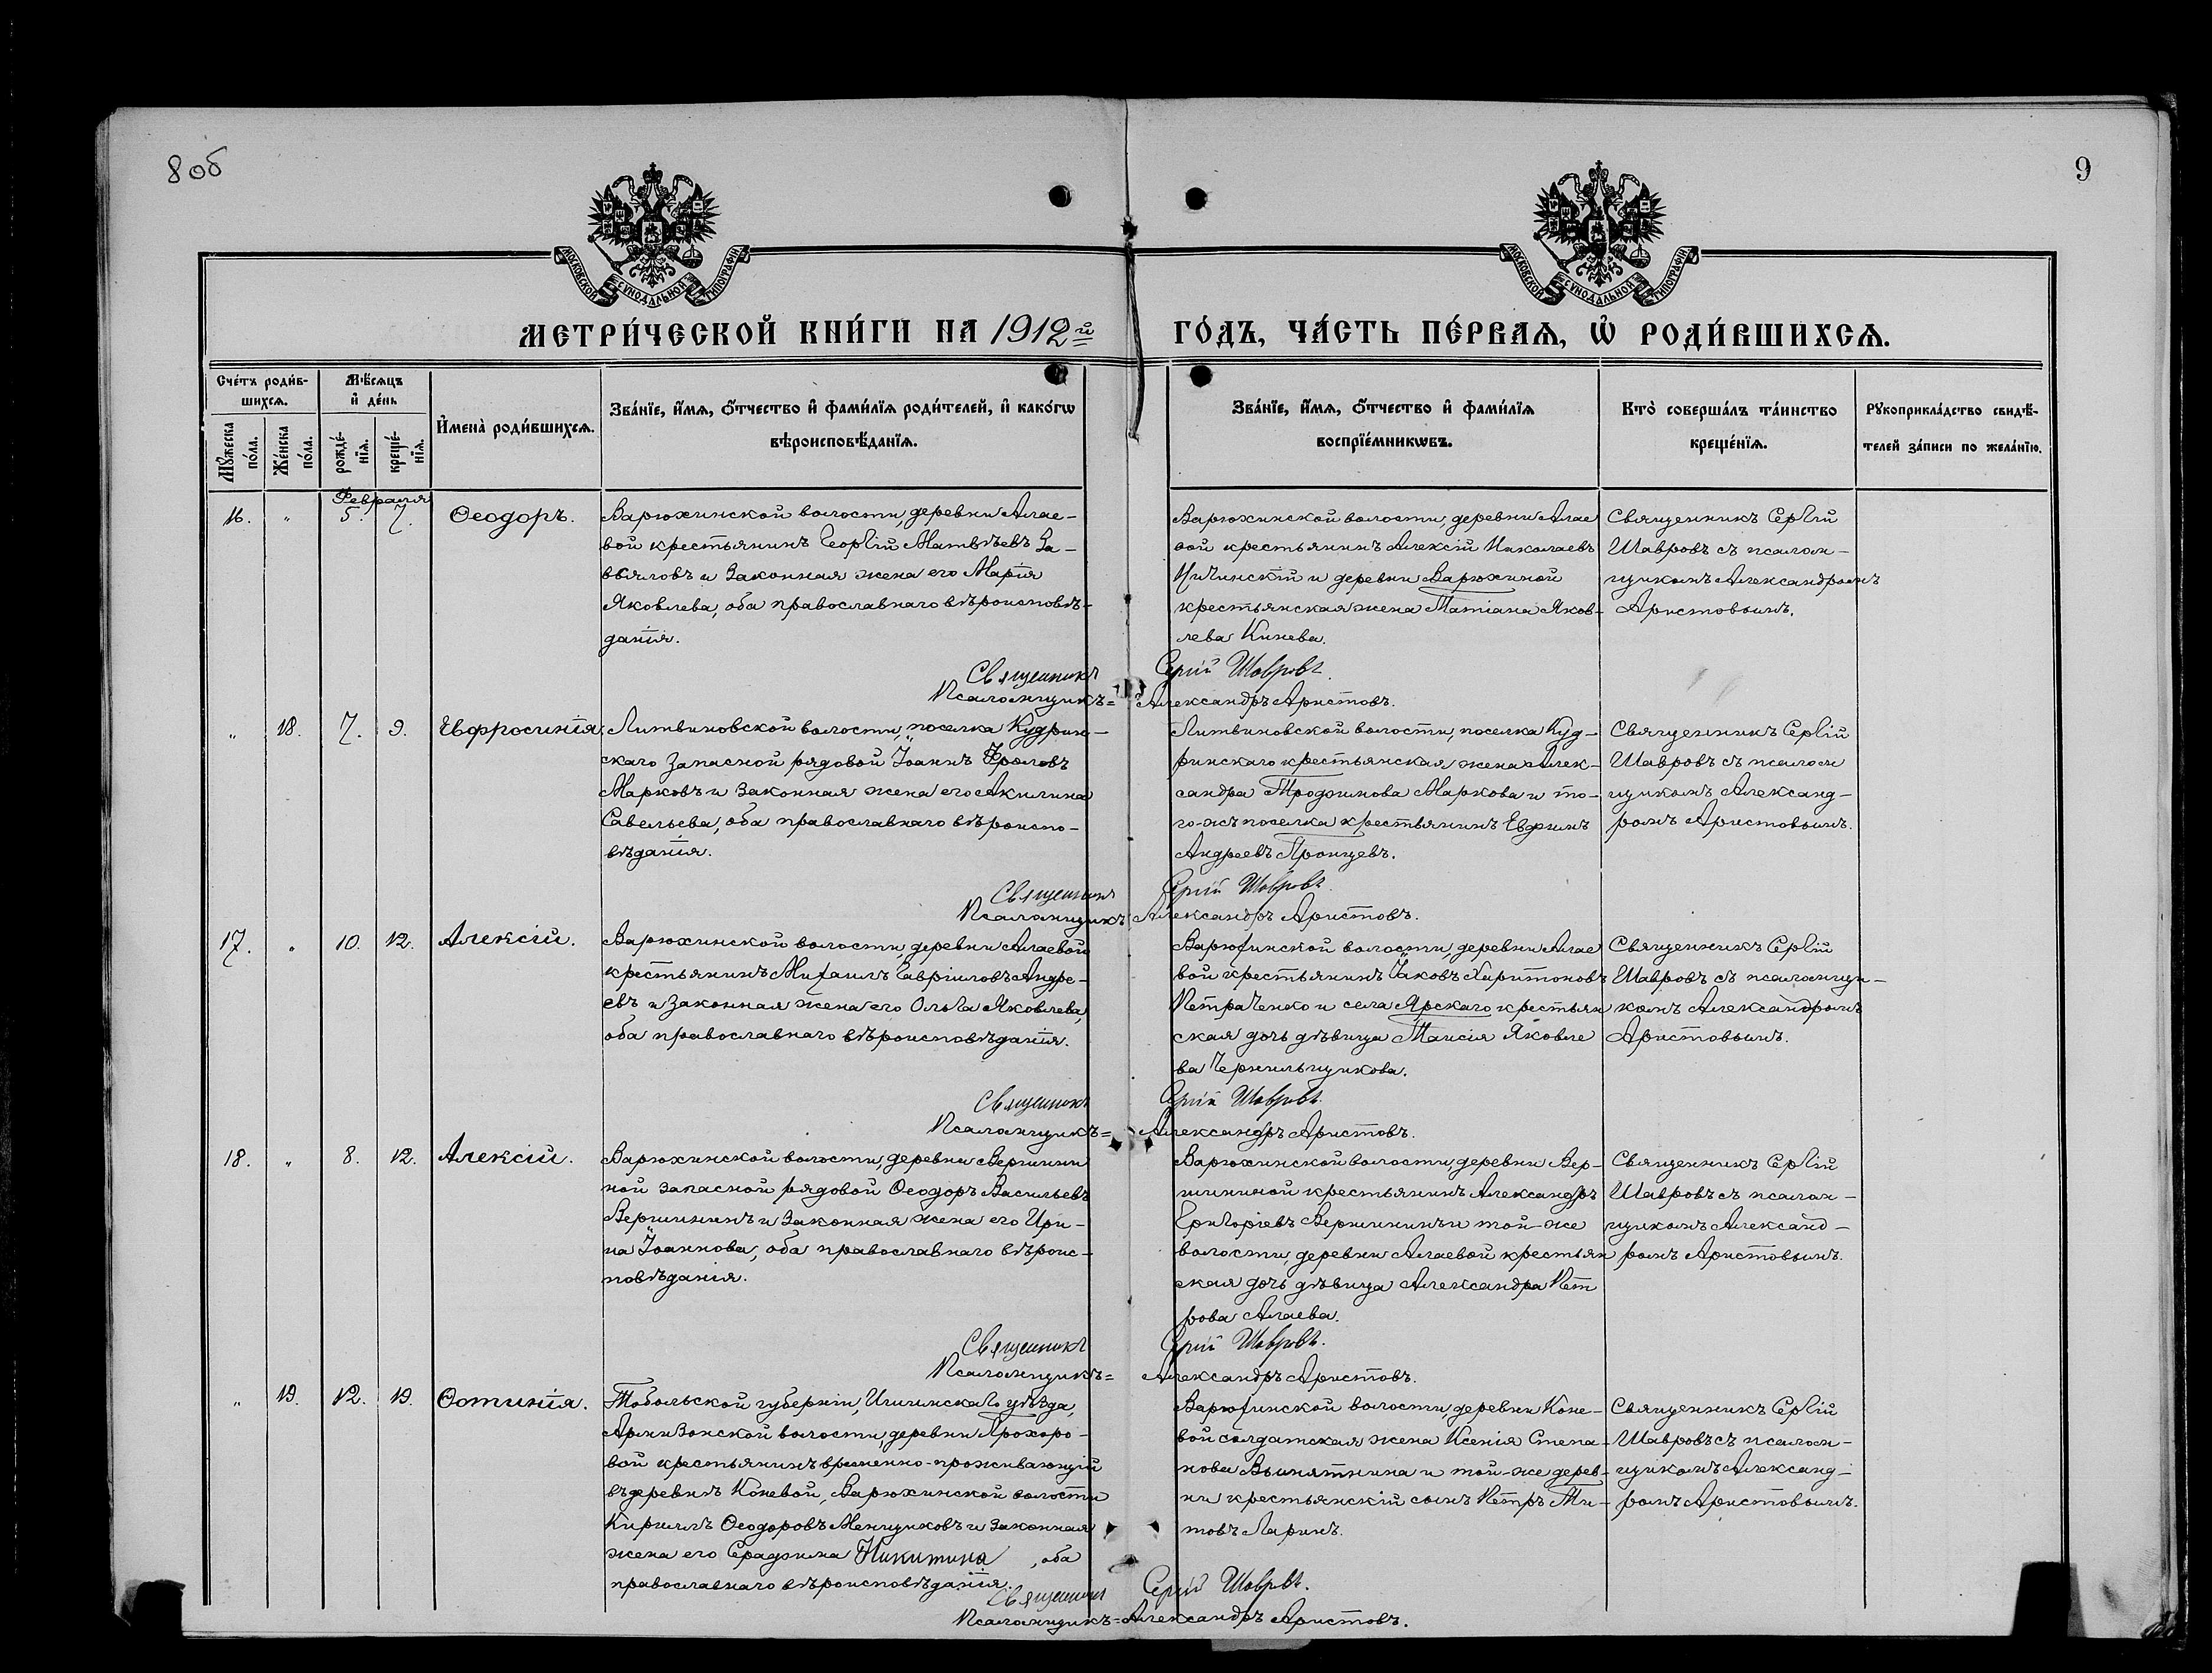 8 об
9
МОСКОВСКОЙ СУНОДАЛЬНОЙ ТИПОГРАФІИ
МОСКОВСКОЙ СУНОДАЛЬНОЙ ТИПОГРАФІИ
МЕТРИ́ЧЕСКОЙ КНИ́ГИ НА 1912й
ГО́ДЪ, ЧА́СТЬ ПЕ́РВАѦ, Ѡ҆ РОДИ́ВШИХСѦ.
Сче́тъ роди́в-
шихсѧ.
Мꙋ́жеска
по́ла.
Же́нска
по́ла.
Мѣ́сѧцъ
и҆ де́нь
рожде́-
нїѧ.
креще́-
нїѧ.
И҆мена̀ роди́вшихсѧ.
Зва́нїе, и҆́мѧ, ѻ҆́тчество и҆ фами́лїѧ роди́телей, и҆ како́гѡ
вѣроисповѣ́данїѧ.
Зва́нїе, и҆́мѧ, ѻ҆́тчество и҆ фами́лїѧ
воспрїе́мникѡвъ.
Кто̀ соверша́лъ та́инство
креще́нїѧ.
Рꙋкоприкла́дство свидѣ́-
телей за́писи по жела́нїю.
Февраля
16. " 5. 7. Ѳеодоръ.
Варюхинской волости, деревни Алае-
вой крестьянинъ Георгій Матвѣевъ За-
вьяловъ и законная жена его Марія
Яковлева, оба православнаго вѣроисповѣ-
данія.
Варюхинской волости, деревни Алае
вой крестьянинъ Алексій Николаевъ
Мичинскій и деревни Варюхиной
крестьянская жена Татіана Яков-
лева Кинева.
Священникъ Сергій
Шавровъ съ псалом-
щикомъ Александромъ
Аристовымъ.
Священникъ Сергій Шавровъ.
Псаломщикъ= Александръ Аристовъ.
" 18. 7. 9. Евфросинія.
Литвиновской волости, поселка Кудрин-
скаго запасной рядовой Іоаннъ Фроловъ
Марковъ и законная жена его Акилина
Савельева, оба православнаго вѣроиспо-
вѣданія.
Литвиновской волости, поселка Куд-
ринскаго крестьянская жена Алек-
сандра Трофимова Маркова и то-
го-жъ поселка крестьянинъ Евфимъ
Андреевъ Пронцевъ.
Священникъ Сергій
Шавровъ съ псалом
щикомъ Александ-
ромъ Аристовымъ.
Священникъ Сергій Шавровъ.
Псаломщикъ Александръ Аристовъ.
17. " 10. 12. Алексій.
Варюхинской волости, деревни Алаевой
крестьянинъ Михаилъ Гавріиловъ Андре-
евъ и законная жена его Ольга Яковлева,
оба православнаго вѣроисповѣданія.
Варюхинской волости, деревни Алае
вой крестьянинъ Іаковъ Харитоновъ
Петраченко и села Ярскаго крестьян
ская дочь дѣвица Таисія Яковле
ва Чернильщикова.
Священникъ Сергій
Шавровъ съ псаломщи-
комъ Александромъ
Аристовымъ.
Священникъ Сергій Шавровъ.
Псаломщикъ= Александръ Аристовъ.
18. " 8. 12. Алексій.
Варюхинской волости, деревни Вершини
ной запасной рядовой Ѳеодоръ Васильевъ
Вершининъ и законная жена его Ири-
на Іоаннова, оба православнаго вѣроис-
повѣданія.
Варюхинской волости, деревни Вер-
шининой крестьянинъ Александръ
Григоріевъ Вершининъ и той-же
волости, деревни Алаевой крестьян
ская дочь дѣвица Александра Пет
рова Алаева.
Священникъ Сергій
Шавровъ съ псалом-
щикомъ Александ-
ромъ Аристовымъ.
Священникъ Сергій Шавровъ.
Псаломщикъ= Александръ Аристовъ.
" 19. 12. 19. Ѳотинія.
Тобольской губерніи, Ишимскаго уѣзда,
Армизонской волости, деревни Прохоро-
вой крестьянинъ временно-проживающій
въ деревнѣ Коневой, Варюхинской волости
Кириллъ Ѳеодоровъ Менщиковъ и законная
жена его Серафима Никитина, оба
православнаго вѣроисповѣданія.
Варюхинской волости, деревни Коне-
вой солдатская жена Ксенія Степа-
нова Вынятнина и той-же дерев-
ни крестьянскій сынъ Петръ Ти-
товъ Ларинъ.
Священникъ Сергій
Шавровъ съ псалом-
щикомъ Александ-
ромъ Аристовымъ.
Священникъ Сергій Шавровъ.
Псаломщикъ=Александръ Аристовъ.